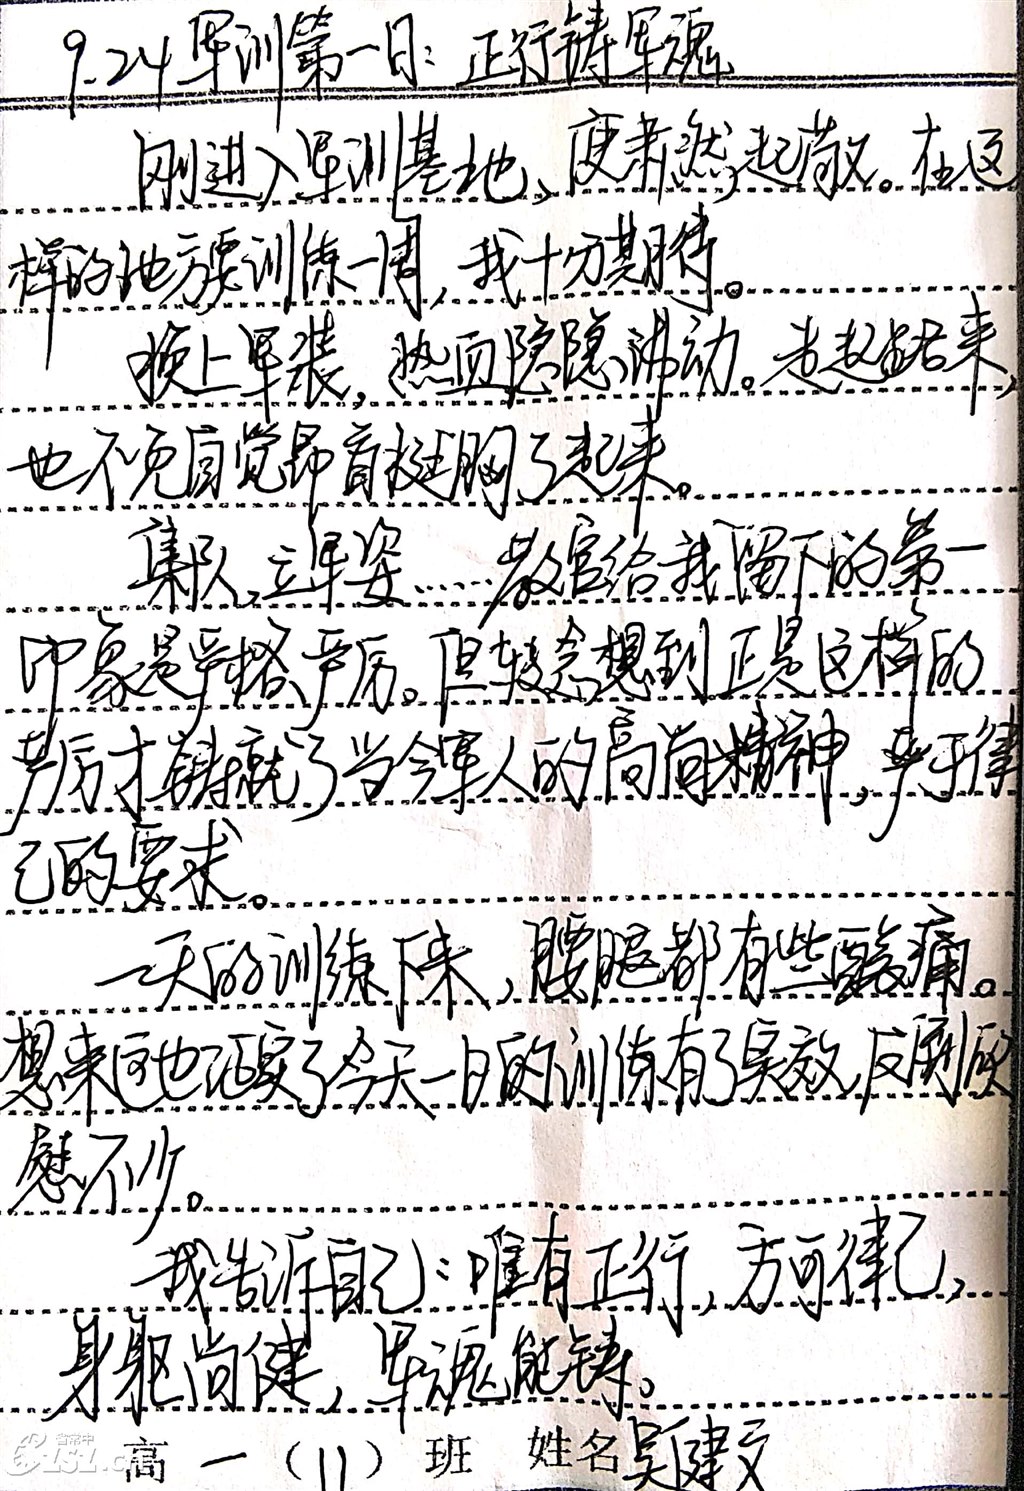 9.24军训第一日：正行铸军魂
刚进入军训基地，便肃然起敬。在这
样的地方要训练一周，我十分期待。
换上军装，热血隐隐沸动。走起路来，
也不免自觉昂首挺胸了起来。
集队，立军姿……教官给我留下的第一
印象是严格、严厉。但转念想到正是这样的
严厉才铸就了当今军人的高尚精神，严于律
己的要求。
一天的训练下来，腰腿都有些酸痛。
想来这也证实了今天一日的训练有了实效，反倒欣
慰不少。
我告诉自己：唯有正行，方可律己，
身躯尚健，军魂能铸。
高一（11）班 姓名吴建文
省常中